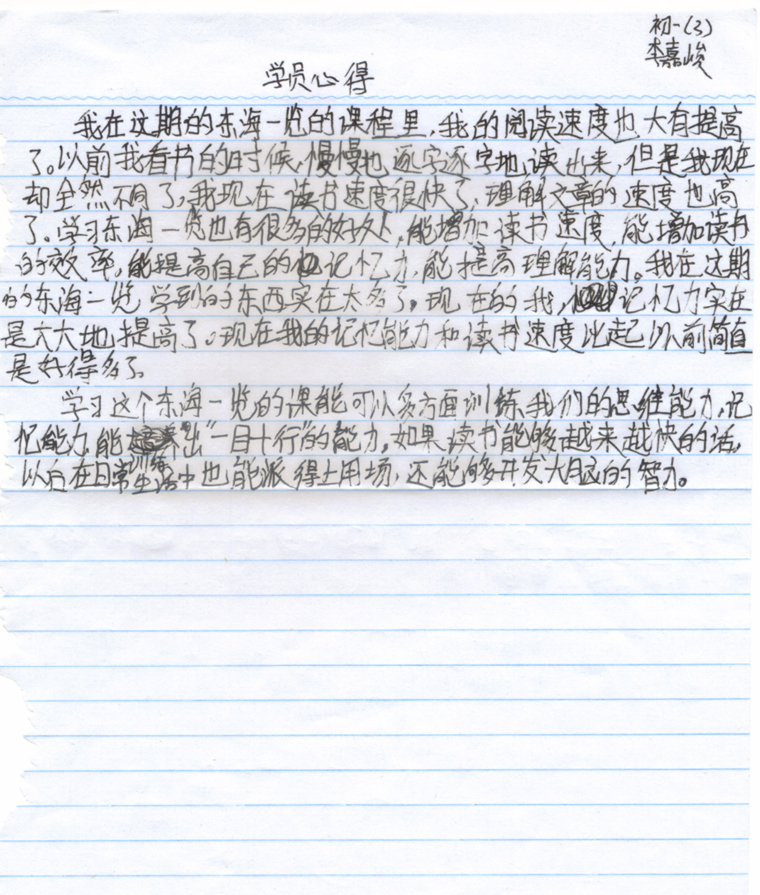 初一(3)
李嘉峻
学员心得
我在这期的东海一览的课程里,我的阅读速度也大有提高
了。以前我看书的时候,慢慢地逐字逐字地读出来,但是我现在
却全然不同了,我现在读书速度很快了,理解文章的速度也高
了。学习东海一览也有很多的好处,能增加读书速度,能增加读书
的效率,能提高自己的记忆力,能提高理解能力。我在这期
的东海一览学到的东西实在太多了。现在的我,记忆力实在
是大大地提高了。现在我的记忆能力和读书速度比起以前简直
是好得多了。
学习这个东海一览的课能可以多方面训练我们的思维能力,记
忆能力,能出"一目十行"的能力。如果读书能够越来越快的话,
以后在日常生活中也能派得上用场,还能够开发大脑的智力。